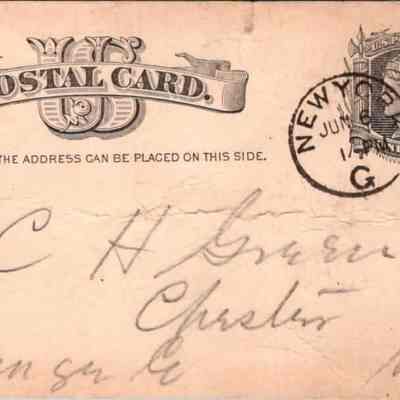 US
POSTAL CARD.
THE ADDRESS CAN BE PLACED ON THIS SIDE.
NEW YORK
JUN 6
1 PM
G
C H Green
Chester